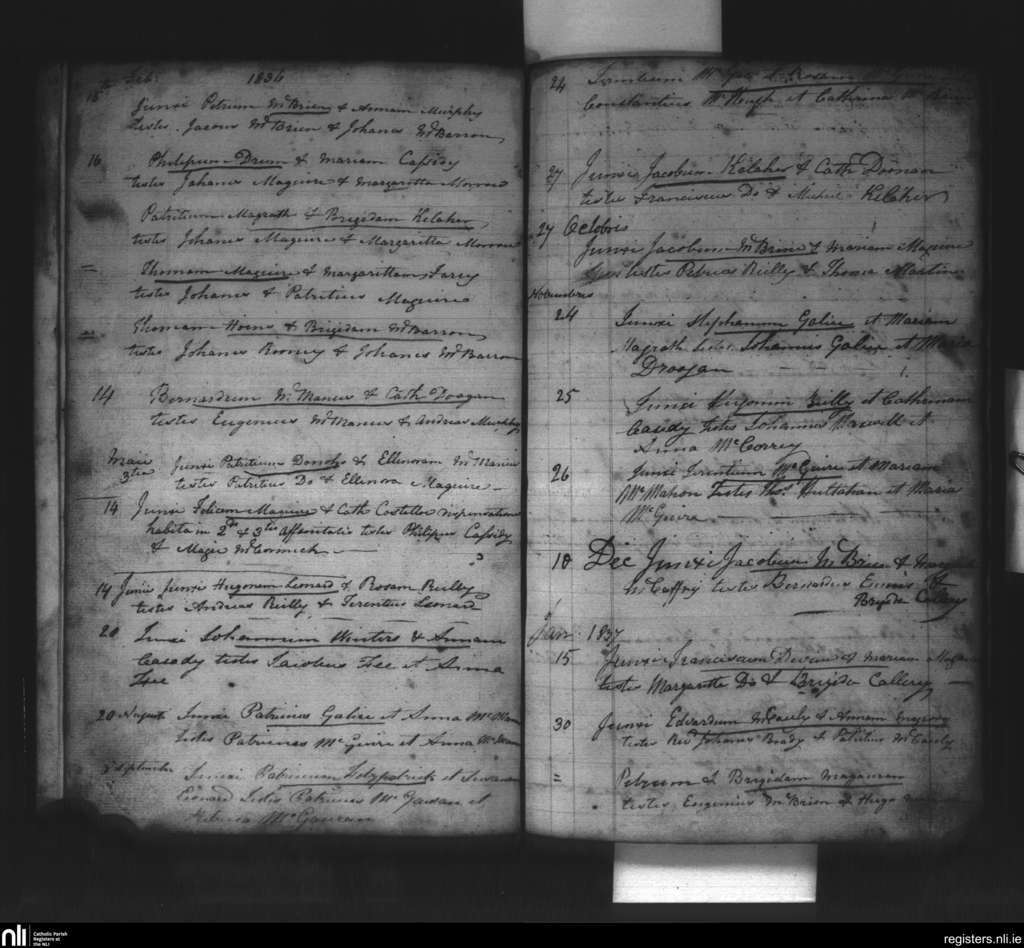 15th Feb. 1836
Junxi Petrum McBrien & Annam Murphy
testes Jacous McBrien & Johanes McBarron
16 Philipum Drum & Mariam Cassidy
testes Johanes Maguire & Margaritta Morrow
Patritium Magrath & Brigidam Kelaher
testes Johanes Maguire & Margaritta Morrow
= Thomam Maguire & Margarittam Farry
testes Johanes & Patritius Maguire
= Thomam Horns & Brigidam McBarron
testes Johanes Rooney & Johanes McBarron
14 Bernardum McManus & Cath Doogan
testes Eugenius McManus & Andreas Murphy
Maii
3tia Junxi Patritium Donohy & Ellenoram McManus
testes Patritius Do & Ellenora Maguire
14 Junxi Felicem Maguire & Cath Costello dispensatione
habita in 2do & 3tio affinitatis testes Philipus Cassidy
& Magie McCormick
14 Junii Junxi Hugonem Leonard & Rosam Reilly
testes Andreas Reilly & Terentius Leonard
20 Junxi Johannum Winters & Annam
Casady testes Jacobus Fee et Anna
Fee
20 August Junxi Patricius Galice et Anna
testes Patricius McGuire et Anna
Septembr Junxi Patricium Fitzpatrick et
Leonard testes Patricius McGauran et
McGauran
24 McGuire & Rosam
Constantius McHugh et Catherina
27 Junxi Jacobum Kelaher & Cath Doonan
testes Franciscus Do & Michael Kelaher
27 Octobris
Junxi Jacobum McBrine & Mariam Maguire
testes Petrus Reilly & Thoma Martin
Novembres
24 Junxi Stephanum Galice et Mariam
Magrath testes Johannus Galice et Maria
Droogan
25 Junxi Hugonum Reilly et Catherinam
Casedy testes Johannus Maxwell et
Anna McCorrey
26 Junxi Terentium McGuire et Mariam
McMahon Testes Thos. Hultahan et Maria
McGuire
10 Dec Junxi Jacobum McBrien &
McCaffry testes Bernardus Ennis &
Brigida Callery
Jan: 1837
15 Junxi Franciscum Devine & Mariam
testes Margaretta Do & Brigida Callery
30 Junxi Edvardum McCauly & Annam Gregory
testes Rev Johanes Brady & Patritius McCauly
= Petrum & Brigidam Magauran
testes Eugenius McBrien & Hugo
nli
Catholic Parish
Registers at
the NLI
registers.nli.ie